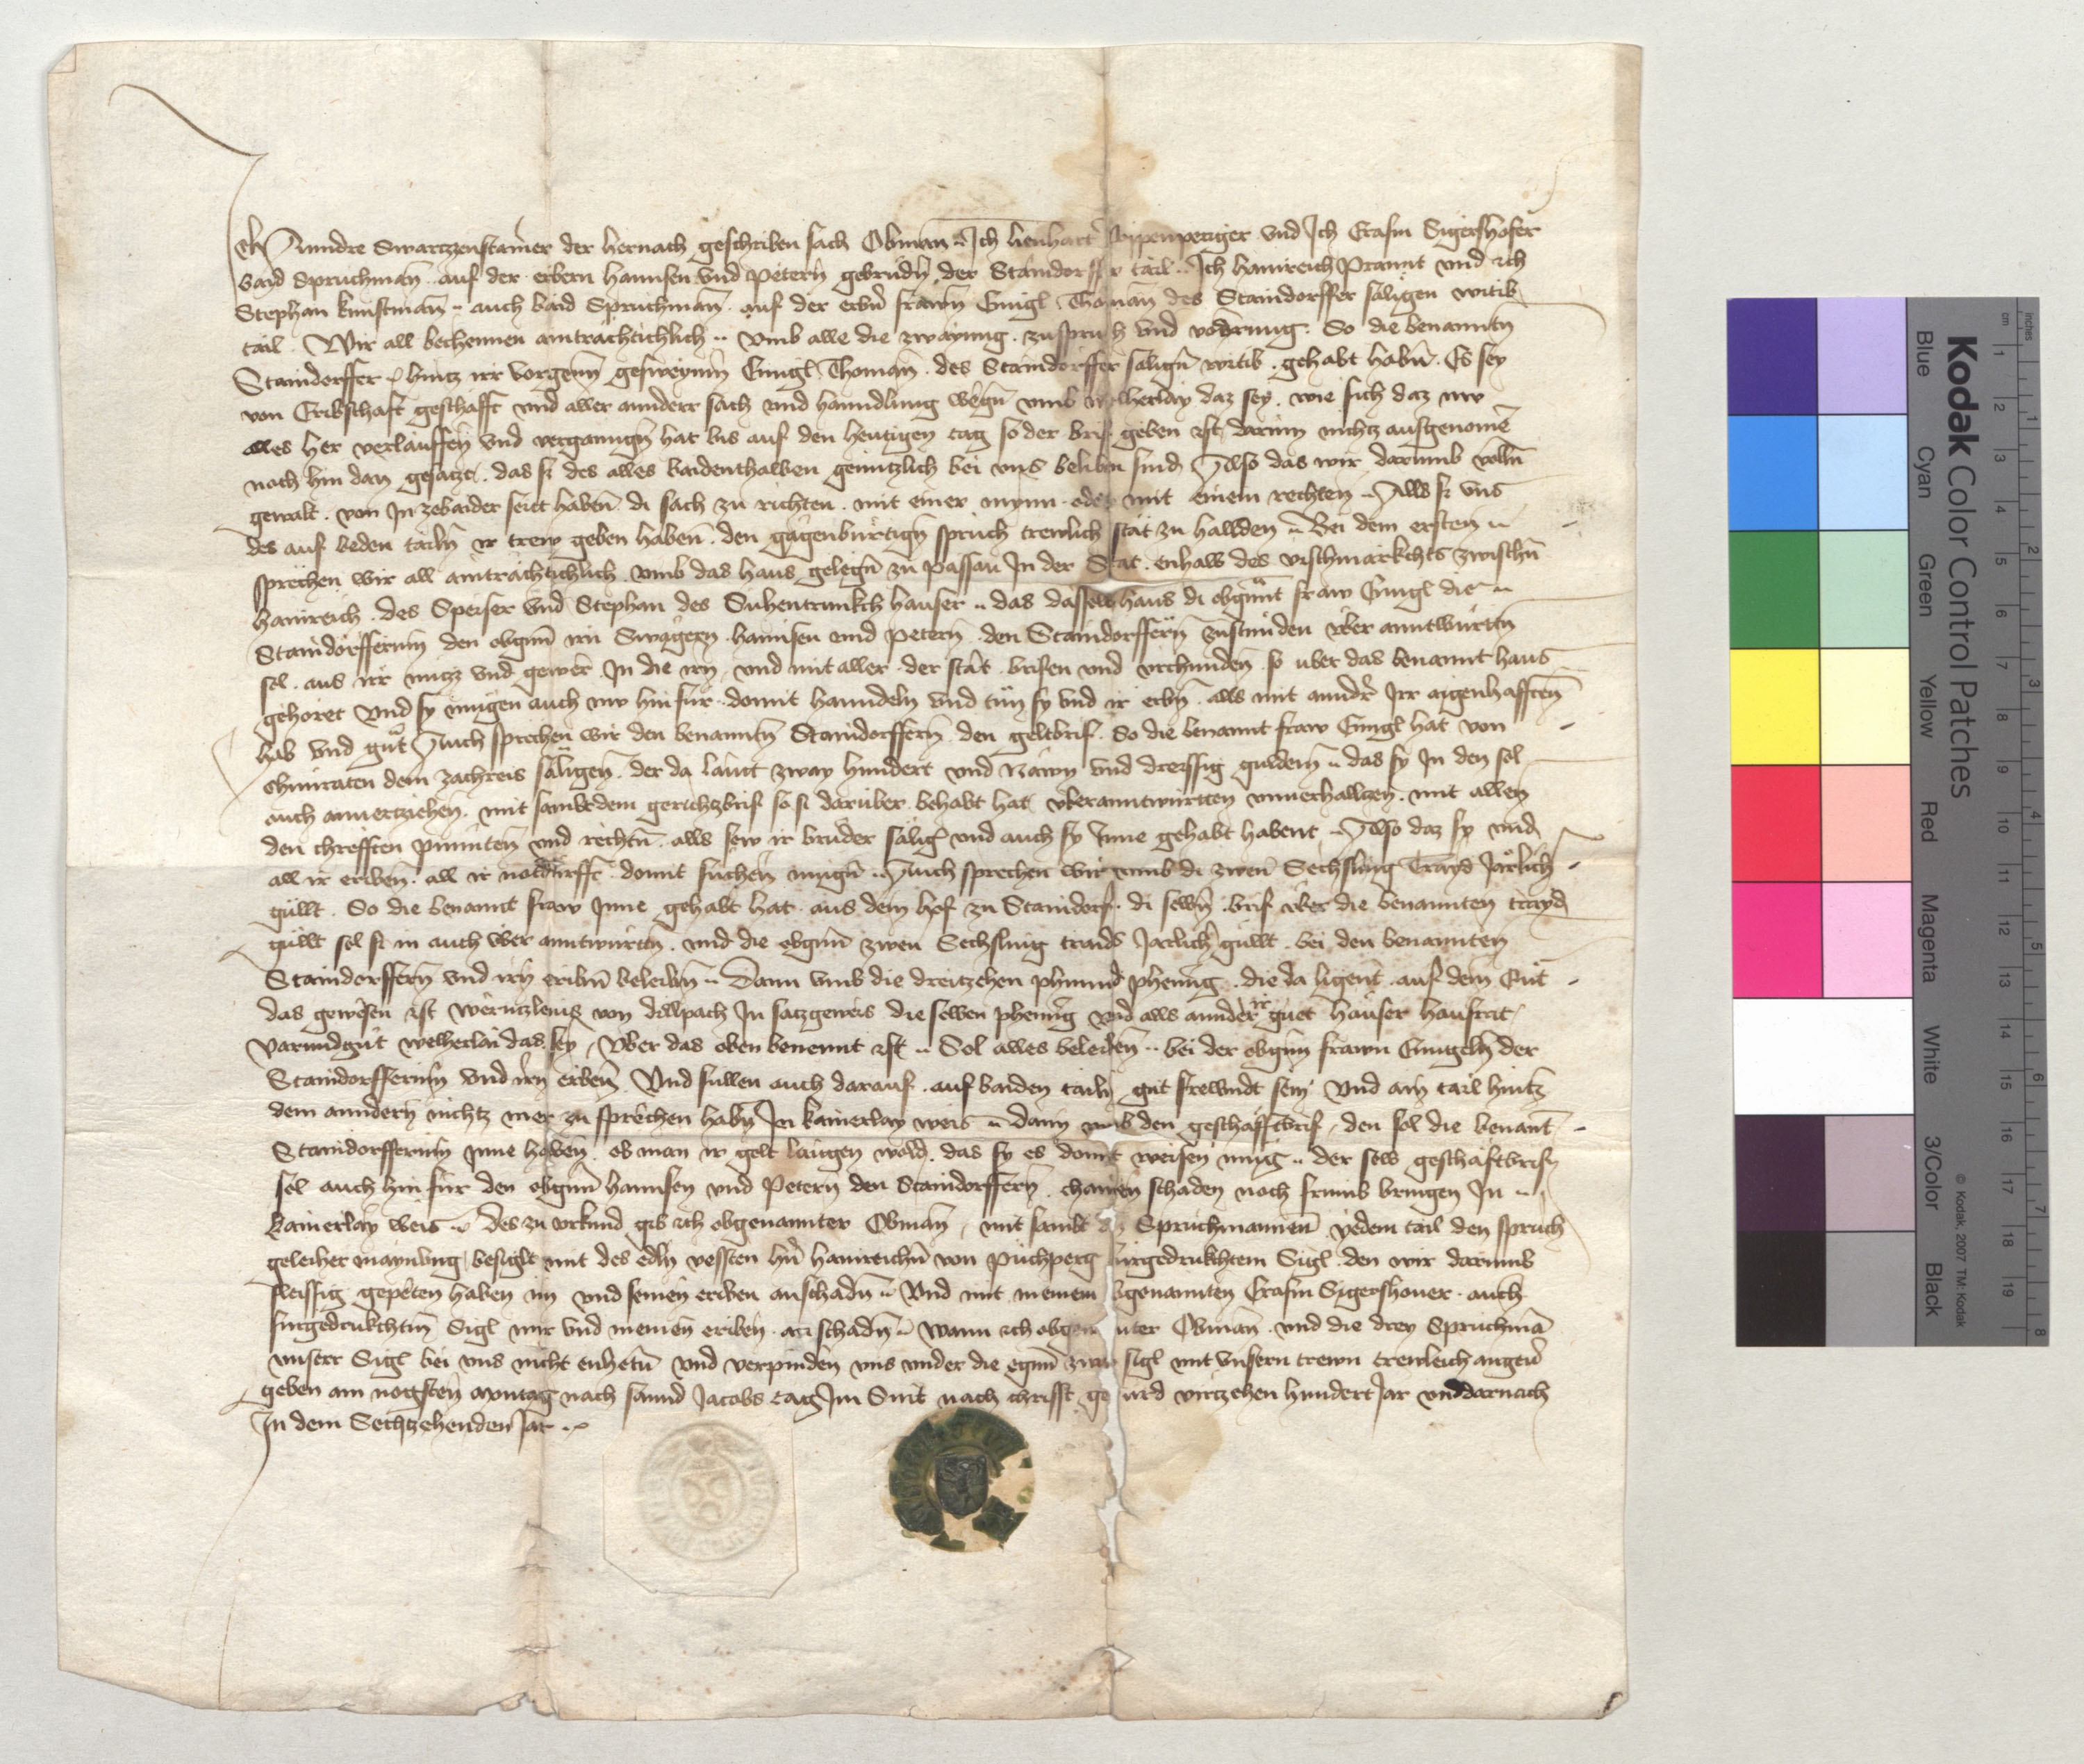 Ich Anndre Swartzenstainer der hernach geschriben sach Obman Ich lienhart Ich Erasm Sigershofer
baid Spruchman auf der erbern hannsen vnd petern gebrudn der Staindorffer tail Ich hainreich Prannt vnd ich
Stephan kunstman auch baid Spruchman auf der erbn frawn Thoman des Staindorffer saligen witib
tail Wir all bechennen aintrachtichlich vmb alle die zwayung zuspruch vnd vodrung So die benanntn
Staindorffer hintz irr vorgenn gesweyinn Thoman des Staindorffer salign witib gehabt habn Es sey
von Eribschaft geschafft vnd aller annderr sach vnd hanndlung wegn vmb welherlay daz sey wie sich daz nw
alles her verlauffen vnd vergangn hat bis auf den heutigen tag so der brif geben ist darinn nichtz ausgenome
noch hin dan gesatzt das si des alles baidenthalben genntzlich bei vns beliben sind Also das wir darumb volln
gewalt von In zebaider seitt haben di sach zu richten mit einer mynn oder mit einem rechten Alls si vns
des auf beden tailn ir trew geben haben den gagenburtign spruch trewlich stat zu hallden Bei dem ersten
sprechen wir all aintrachtichlich vmb das haus gelegn zu passau In der Stat enhalb des vischmarkchts zwischn
hainreich des Speiser vnd Stephan des Suhentrunkch hauser das dasselb haus di obgnnt fraw die
Staindorfferinn den obgnn irn Swagern hannsen vnd petern den Staindorffern zustunden vber anntwurtn
sol aus irr nutz vnd gewer In die irn vnd mit aller der stat brifen vnd vrchunden so uber das benannt haus
gehoret Vnd sy mugen auch nw hinfur damit hanndeln vnd tun sy vnd ir erbn alls mit anndr Irr aigenhafften
hab vnd gut Auch sprechen wir den benanntn Staindorffern den geltbrif So die benannt fraw hat von
chunraten dem zachreis saligen der da laut zway hundert vnd Nawn vnd dreissig guldein das sy In den sol
auch mit sambt dem gerichtzbrif so si daruber behabt hat vberanntwurtten vnuerhallten mit allen
den chrefften punnten vnd rechtn alls sew ir bruder salig vnd auch sy Inne gehabt habent Also daz sy vnd
all ir eriben all ir notdurfft domit suchen mugn Auch sprechen wir vmb di zwen Sechsling Trayd Jarlich
gullt So die benannt fraw Inne gehabt hat aus dem hof zu Staindorf di selbn brif vber die benannten trayd
gullt sol si in auch vber anntwurtn vnd die obgnn zwen Sechsling traids Jarlich gullt bei den benannten
Staindorffern vnd irn eribn beleibn Dann vmb die dreitzehen phunnd phening die da ligent auf dem Gut
das gewesen ist von dillpach In satzgeweis die selben phening vnd alls annder ir guet hauser hausrat
varundgut welherlai das sey Vber das oben benennt ist Sol alles beleiben bei der obgnn frawn der
Staindorfferinn vnd irn erben Vnd sullen auch darauf auf baiden tailn gut frewndt sein Vnd ain tail hintz
dem anndern nichtz mer zu sprechen habn In kainerlay weis dann vmb den geschafftbrif den sol die benant
Staindorfferinn Inne haben ob man ir gelt laugen wold das sy es domit weisen mug der selb geschaftbrif
sol auch hinfur den obgnn hannsen vnd Petern den Staindorffern chainen schaden noch frumb bringen In
kainerlay weis Des zu vrkund gib ich obgenannter Obman mit sambt den Spruchmannen yedem tail den spruch
geleiher maynung besiglt mit des edln vessten hrn hainreichn von puchperg furgedrukchtem Sigl den wir darumb
fleissig gepeten haben im vnd seinen eriben anschadn Vnd mit meinem obgenannten Erasm Sigershouer auch
furgedrukchtm Sigl mir vnd meinen eriben an schadn wann ich obgenanter Obman vnd die drey Spruchma
vnserr Sigl bei vns nicht enhetn vnd verpinden vns vnder die egnn zway sigl mit vnsern trewn trewleich angeur
geben am nagsten mantag nach sannd Jacobs tag Im Snit nach christ geburd virtzehen hundert Jar vnd darnach
In dem Sechtzehenden Jar
Kodak Color Control Patches
Blue Cyan Green Yellow Red Magenta White 3/Color Black
© Kodak, 2007 TM: Kodak
cm 1 2 3 4 5 6 7 8 9 10 11 12 13 14 15 16 17 18 19
inches 1 2 3 4 5 6 7 8